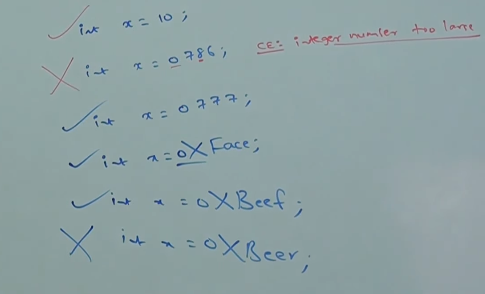 int x = 10;
int x = 0786; CE: integer number too large
int x = 0777;
int x = 0XFace;
int x = 0XBeef;
int x = 0XBeer;